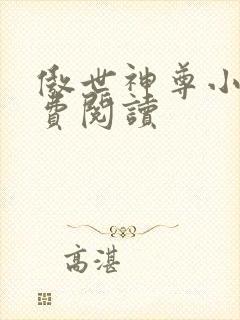 傲世神尊小
費閱讀
高湛